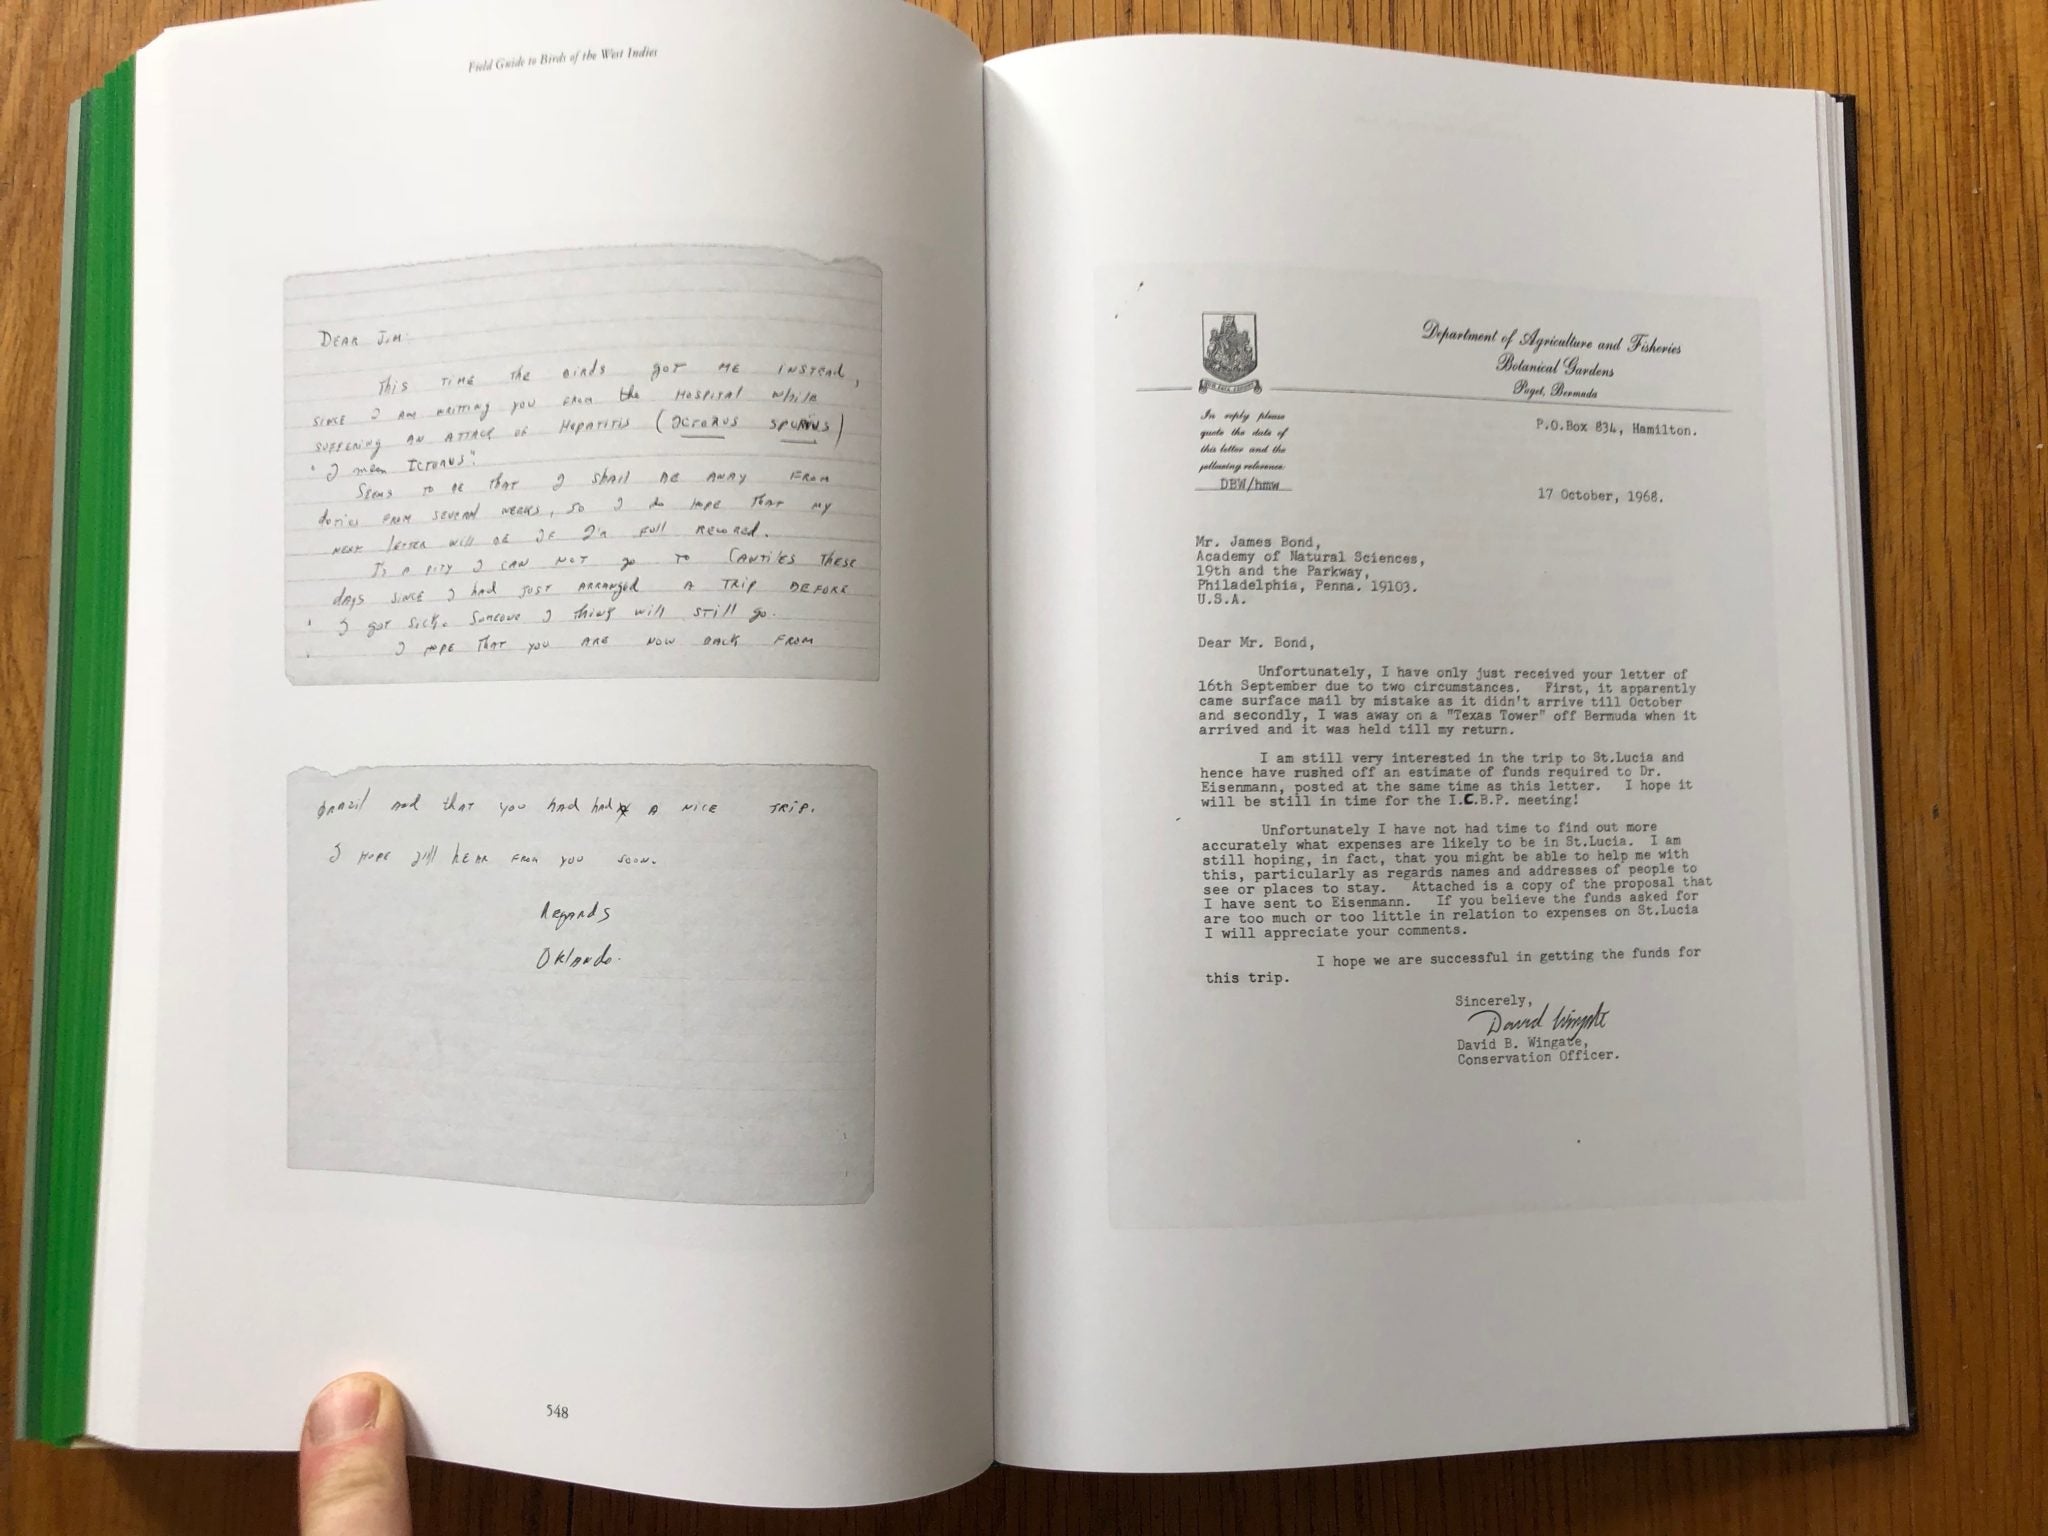 Field Guide to Birds of the West Indies
DEAR JIM:
THIS TIME THE BIRDS GOT ME INSTEAD,
SINCE I AM WRITTING YOU FROM the HOSPITAL WHILE
SUFFERING AN ATTACK OF HEPATITIS (ICTERUS SPURIUS)
"I mean ICTERUS".
SEEMS TO BE THAT I SHALL BE AWAY FROM
duties FROM SEVERAL WEEKS, SO I do HOPE THAT MY
NEXT LETTER WILL BE IF I'm FULL RECORED.
It's A PITY I CAN NOT go TO CANTILES THESE
days SINCE I had JUST ARRANGED A TRIP BEFORE
I got SICK. SOMEONE I THINK WILL STILL go.
I HOPE THAT YOU ARE NOW BACK FROM
BRAZIL AND THAT YOU HAD HAD A NICE TRIP.
I HOPE I'll HEAR FROM YOU SOON.
Regards
ORLANDO.
548
Department of Agriculture and Fisheries
Botanical Gardens
Paget, Bermuda
In reply please
quote the date of
this letter and the
following reference
DBW/hmw
P.O.Box 834, Hamilton.
17 October, 1968.
Mr. James Bond,
Academy of Natural Sciences,
19th and the Parkway,
Philadelphia, Penna. 19103.
U.S.A.
Dear Mr. Bond,
Unfortunately, I have only just received your letter of
16th September due to two circumstances. First, it apparently
came surface mail by mistake as it didn't arrive till October
and secondly, I was away on a "Texas Tower" off Bermuda when it
arrived and it was held till my return.
I am still very interested in the trip to St.Lucia and
hence have rushed off an estimate of funds required to Dr.
Eisenmann, posted at the same time as this letter. I hope it
will be still in time for the I.C.B.P. meeting!
Unfortunately I have not had time to find out more
accurately what expenses are likely to be in St.Lucia. I am
still hoping, in fact, that you might be able to help me with
this, particularly as regards names and addresses of people to
see or places to stay. Attached is a copy of the proposal that
I have sent to Eisenmann. If you believe the funds asked for
are too much or too little in relation to expenses on St.Lucia
I will appreciate your comments.
I hope we are successful in getting the funds for
this trip.
Sincerely,
David Wingate
David B. Wingate,
Conservation Officer.